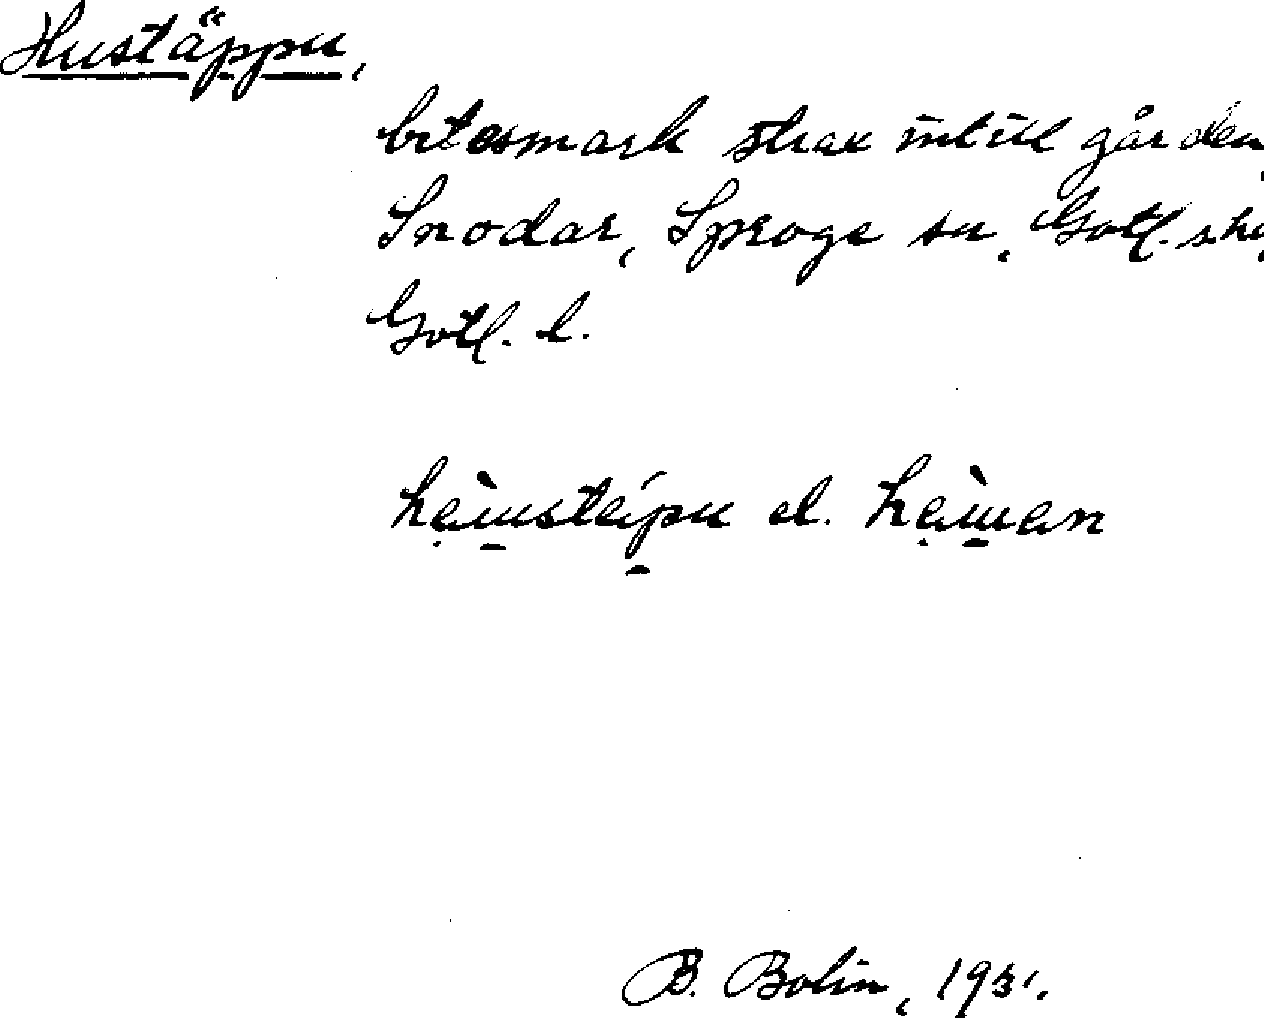 Hustäppu,
betesmark strax intill gården
Snodar, Sproge sn, Gotl. s. hd,
Gotl. l.
hạ̀u̱stei̱pu el. hạ̀u̱an
B. Bolin, 1931.